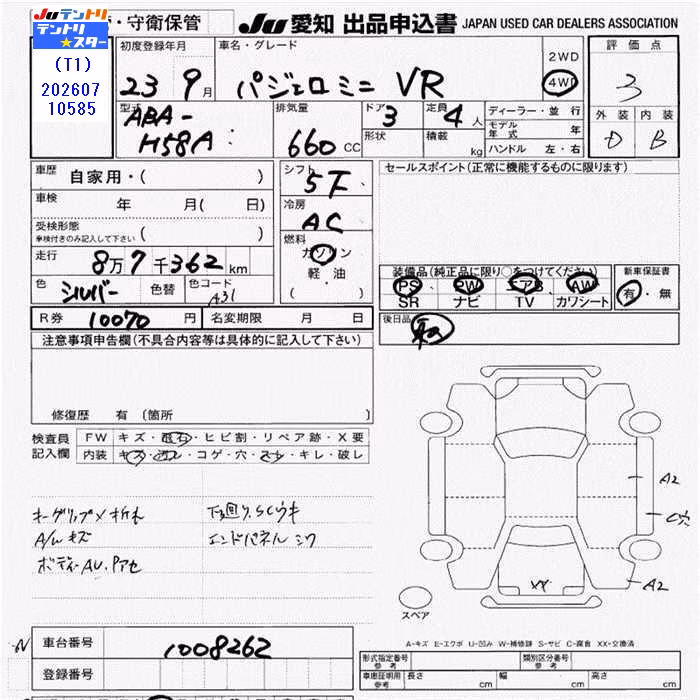 Ju テントリ
テントリ★スター
(T1)
202607
10585
・守衛保管
Ju 愛知 出品申込書 JAPAN USED CAR DEALERS ASSOCIATION
初度登録年月 車名・グレード 2WD 4WD 評価点
23 9月 パジェロミニ VR 3
外装 内装
D B
型式 ABA-H58A 排気量 660 CC ドア 3 定員 4人
形状 積載 kg
ディーラー・並行
モデル年式 年
ハンドル 左・右
車歴 自家用・( )
シフト 5F
セールスポイント(正常に機能するものに限ります)
車検 年 月( 日)
冷房 AC
受検形態
車検付きのみ記入して下さい ( )
燃料 ガソリン
軽・油
( )
走行 8万7千362km
色 シルバー 色替 色コード A31
装備品(純正品に限り○をつけてください) 新車保証書
PS PW エアB AW
SR ナビ TV カワシート
有・無
R券 10070円 名変期限 月 日
後日品
注意事項申告欄(不具合内容等は具体的に記入して下さい)
修復歴 有〔箇所 〕
検査員記入欄
FW キズ・飛石・ヒビ割・リペア跡・X要
内装 キズ・汚レ・コゲ・穴・スレ・キレ・破レ
キーグリップメ折れ 下廻り.SCウキ
A/Wキズ エンドパネルシワ
ボディーAU.Pアセ
A2
C穴
A2
XX
スペア
A-キズ E-エクボ U-凹み W-補修跡 S-サビ C-腐食 XX-交換済
車台番号 1008262
登録番号
形式指定番号 参考 類別区分番号 参考
車庫証明用 参考 長さ cm 幅 cm 高さ cm